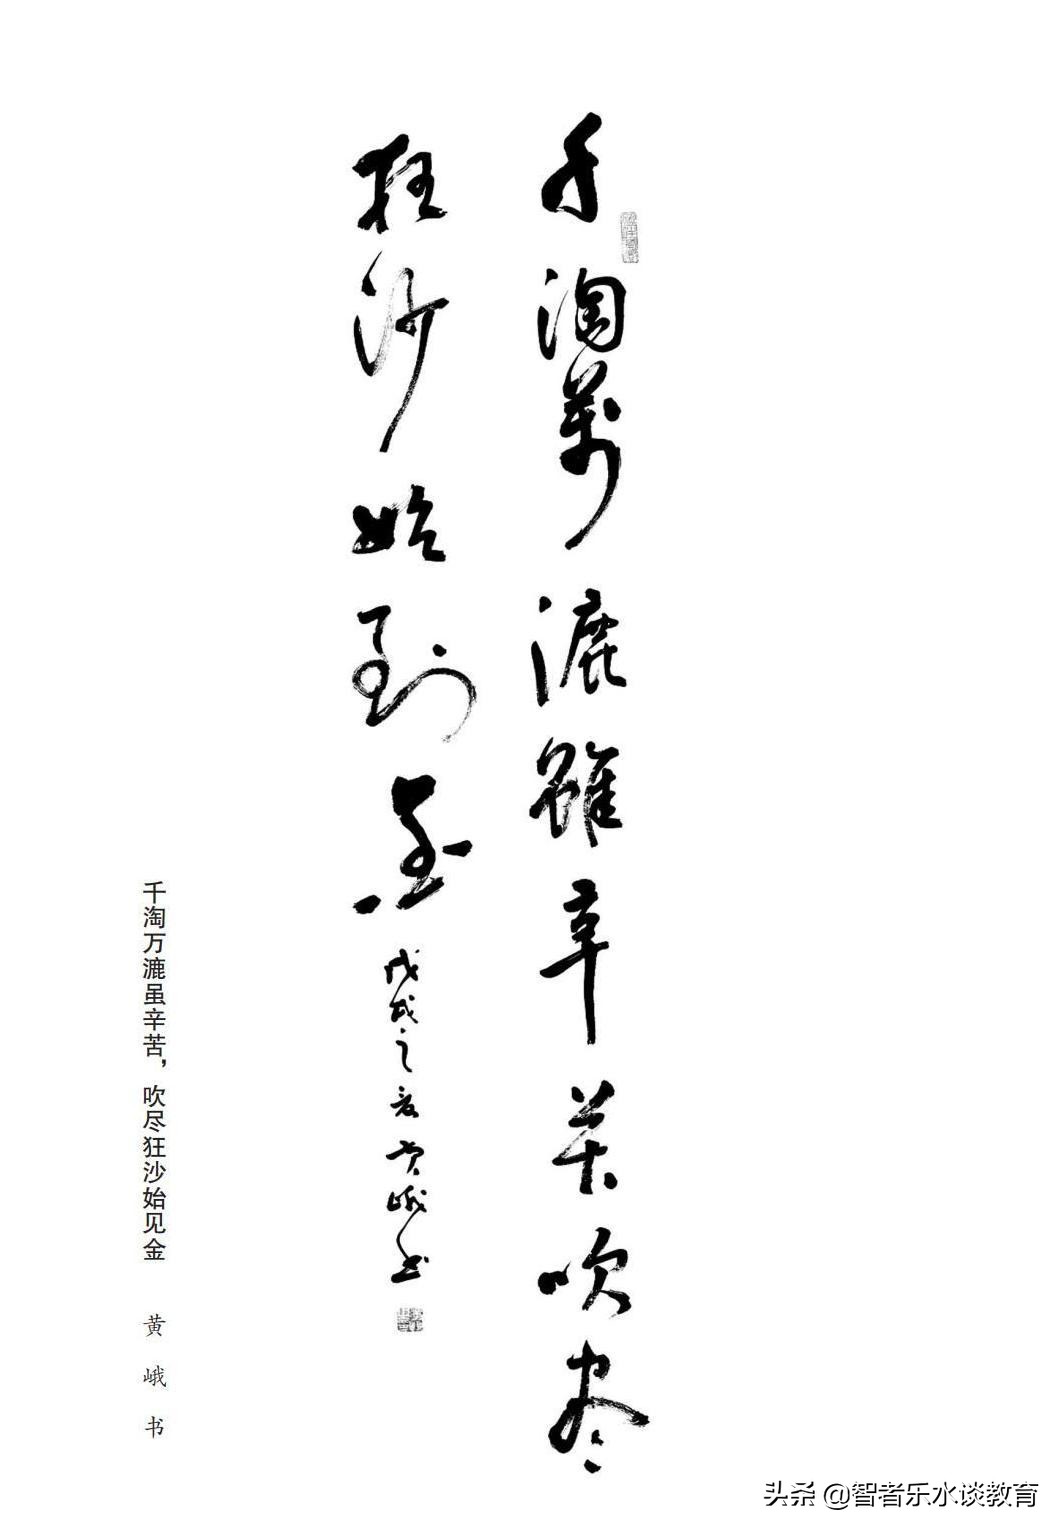 千淘萬漉雖辛苦吹尽
狂沙始到金
戊戌之 黄峨书
千淘万漉虽辛苦，吹尽狂沙始见金 黄峨书
头条 @智者乐水谈教育